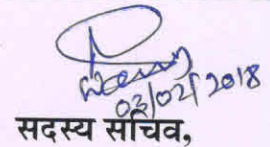 03/02/2018
सदस्य सचिव,